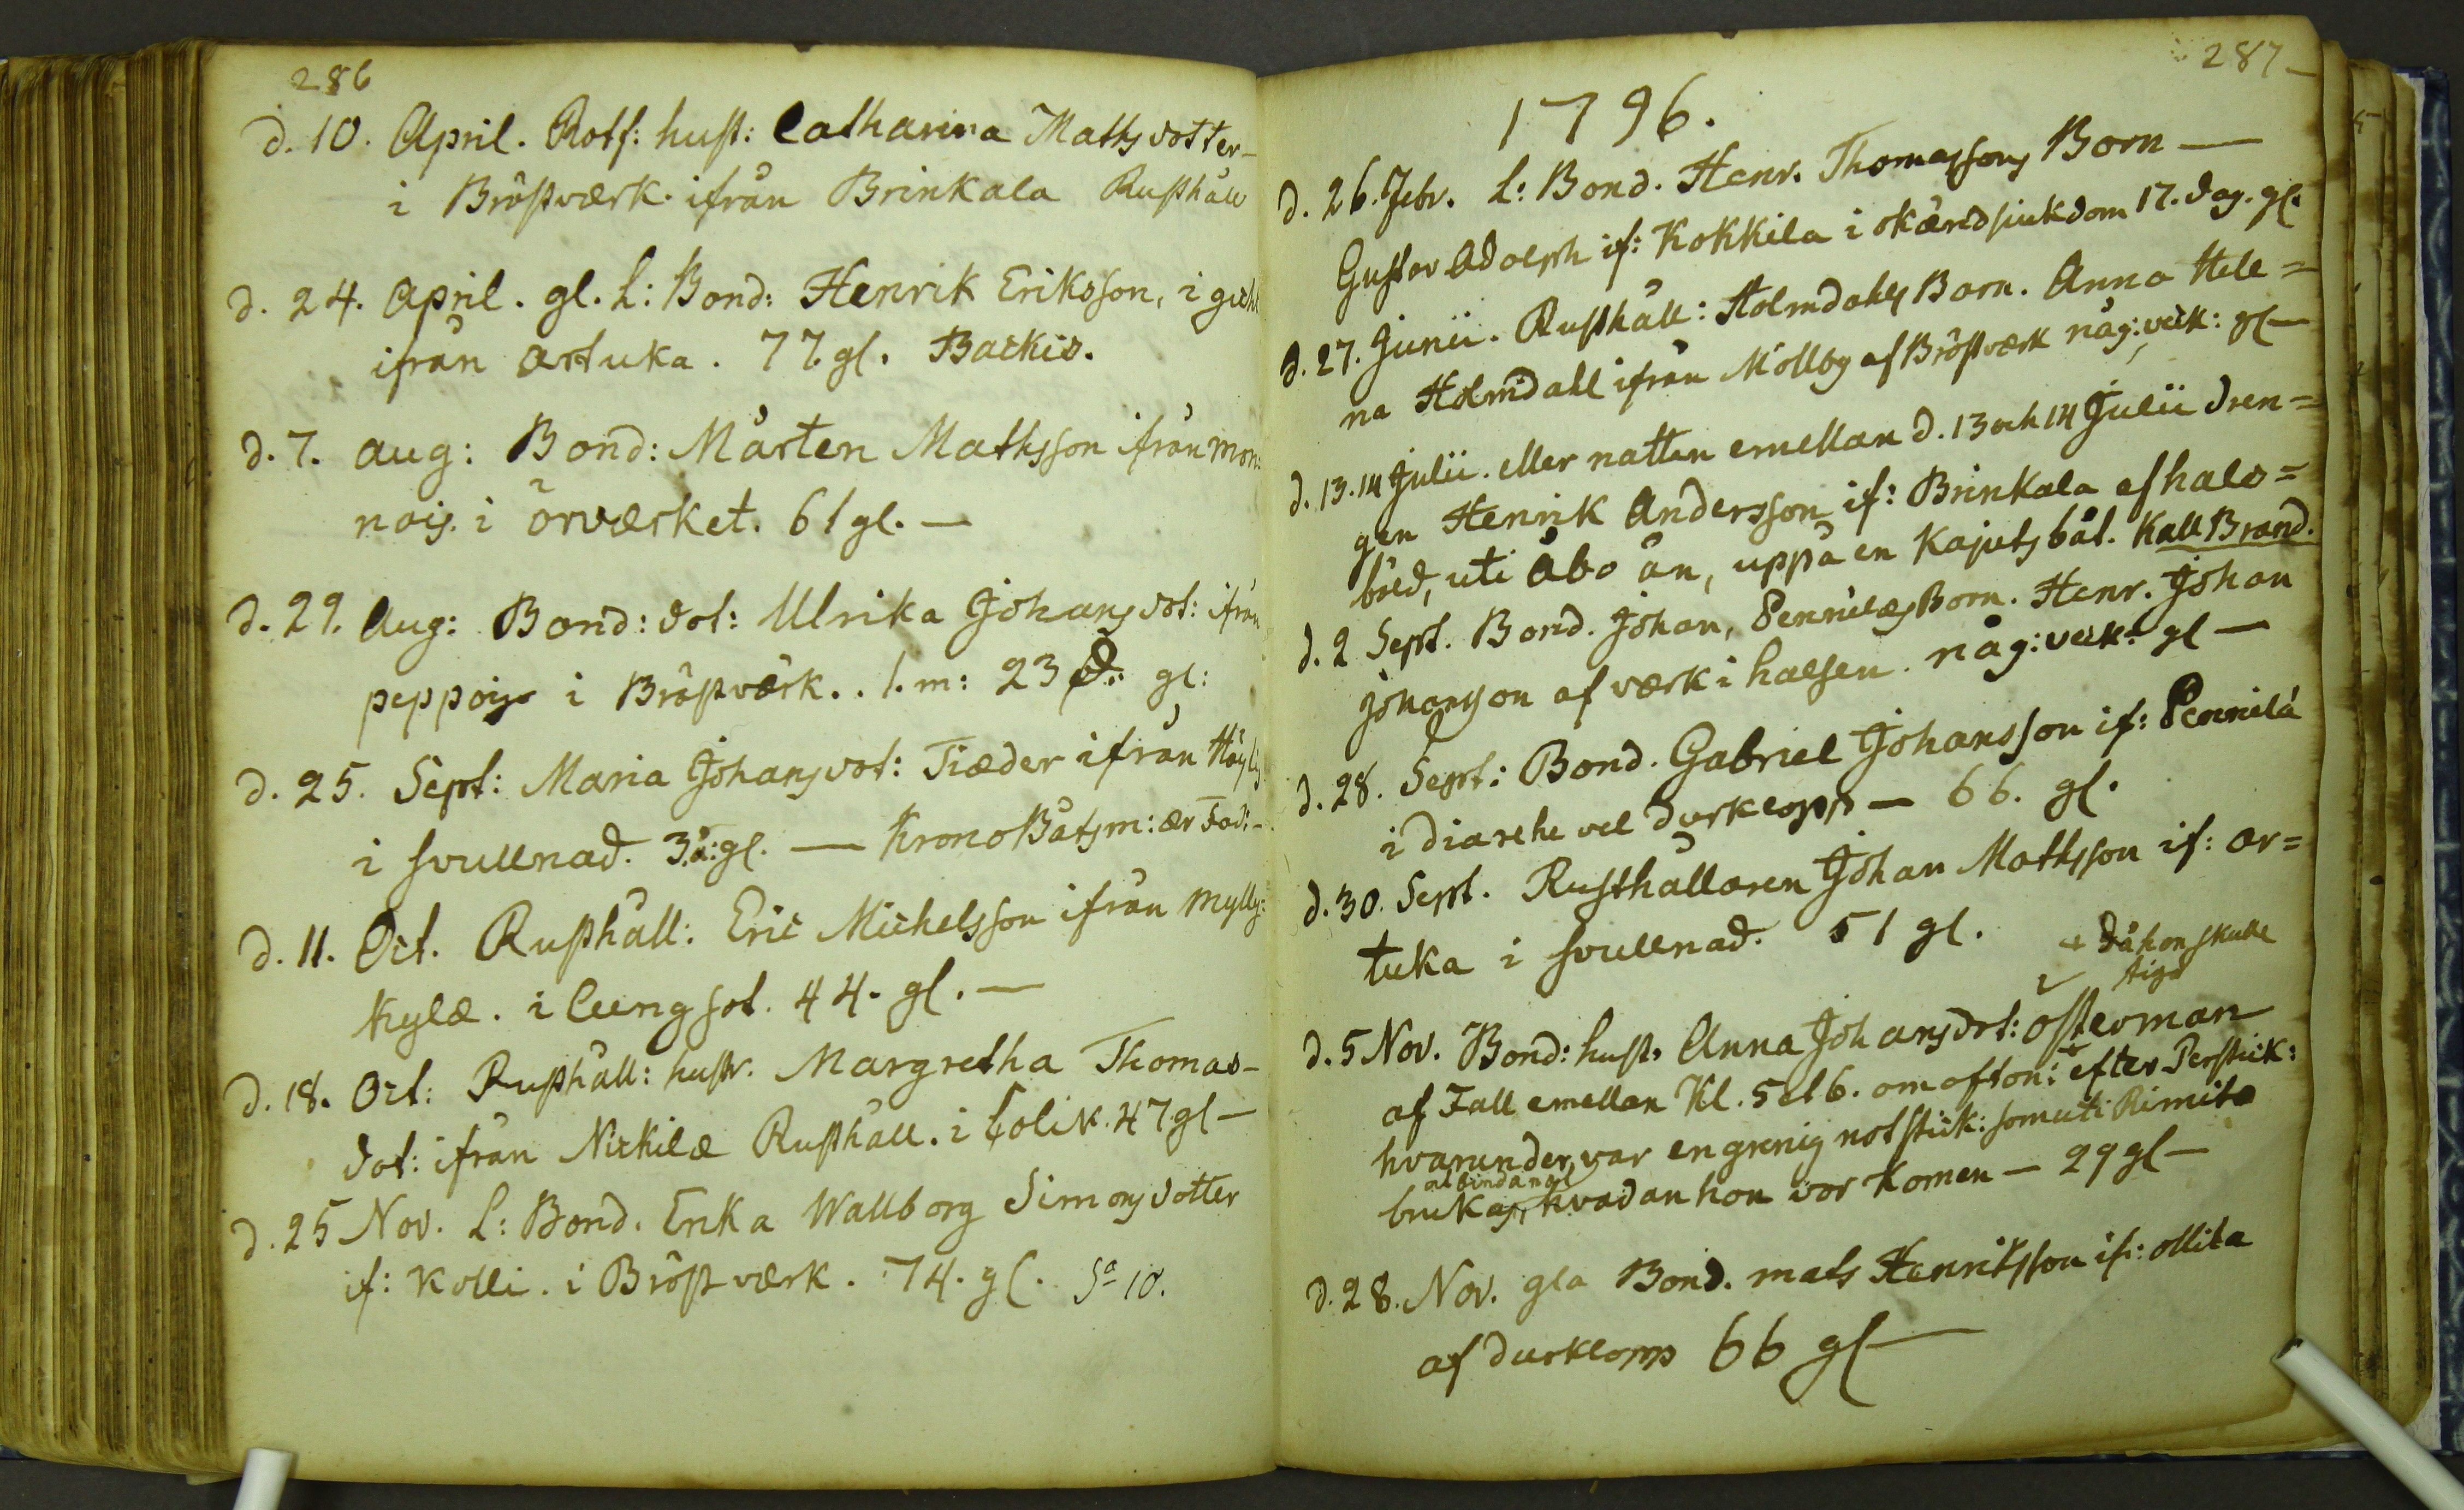 286
d. 10. April. Rotf: hust: Catharina Mathsdotter
i Bröstværk. ifrån Brinkala Rusthåll
d. 24. April. gl. L: Bond: Henrik Eriksson, i
ifrån Artuka. 77 gl. Backis.
d. 7. Aug: Bond: Mårten Mathsson ifrån Mon:
nois. i örværket. 61 gl. —
d. 29. Aug: Bond: dot: Ulrika Johansdot: ifrån
peppois i Bröstværk. 1. m: 23 D: gl:
d. 25. Sept: Maria Johansdot: Tiæder ifrån
i svullnad. 3 å: gl. — Krono Båtsm: ær Fad:
d. 11. Oct. Rusthåll: Eric Michelsson ifrån Mylly:
kylæ. i lungsot. 44. gl. —
d. 18. Oct: Rusthåll: hustr. Margretha Thomas-
dot: ifrån Nickilæ Rusthåll. i Colik. 47 gl —
d. 25 Nov. L: Bond. Erika Wallborg Simonsdotter
if: Kolli. i Bröstværk. 74. gl. Sa 10.
287
1796.
d. 26. Febr. L: Bond. Henr. Thomassons Barn —
Gustav Adolph if: Kokkila i okændsiukdom 17. dag. gl.
d. 27. Junii. Rusthåll: Holmdahls Barn. Anna Hele=
na Holmdahl ifrån Mollby af Bröstværk någ: veck: gl —
d. 13. 14 Julii. eller natten emellan d. 13 och 14 Julii dren=
gen Henrik Andersson if: Brinkala af hals=
böld, uti Åbo ån, uppå en Kajutsbåt. Kall Brand.
d. 2 Sept. Bond. Johan, Pennilæs Barn. Henr. Johan
Johansson af værk i halsen. någ: veck: gl —
d. 28. Sept: Bond. Gabriel Johansson if: Pennilá
i diarehe vel durklopp — 66. gl.
d. 30. Sept. Rusthållaren Johan Mathsson if: Ar=
tuka i svullnad. 51 gl.
+ Då hon skulle
stiga
d. 5 Nov. Bond: hust. Anna Johansdot: Österman
af Fall emellan Kl. 5 el 6. om afton: efter
hvarunder var en grenig notstick: som uti Rimito
brukas, hvadan hon var komen — 29 gl —
d. 28. Nov. gla Bond. mats Henriksson if: ollila
af durklopp 66 gl —